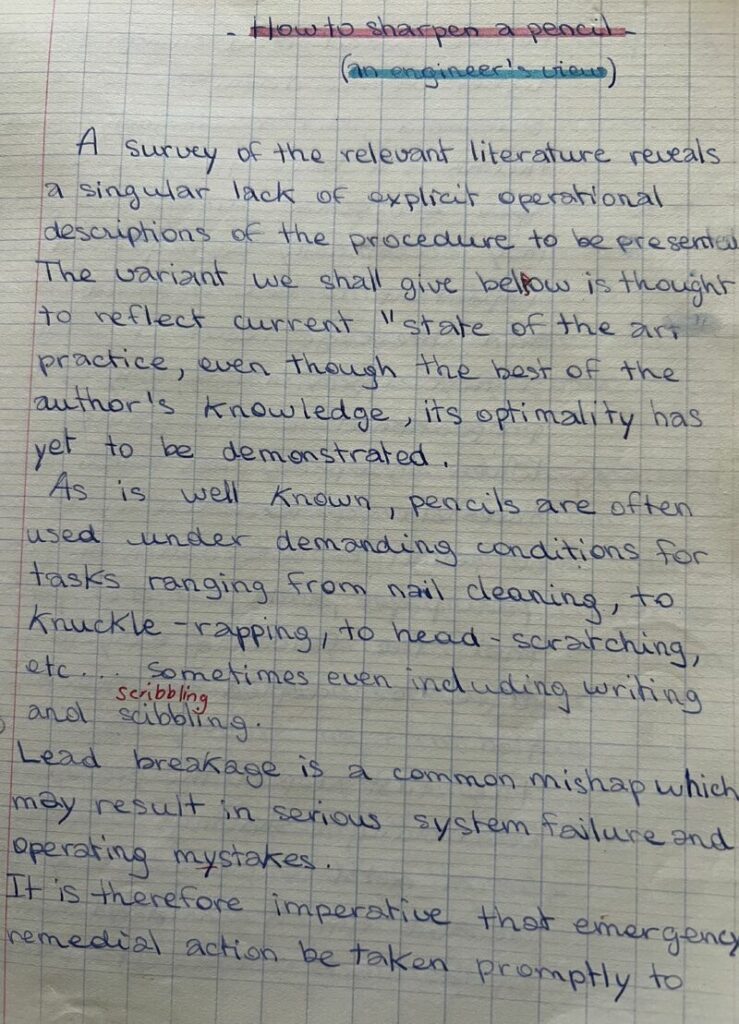 - How to sharpen a pencil -
(an engineer's view)
A survey of the relevant literature reveals
a singular lack of explicit operational
descriptions of the procedure to be presented
The variant we shall give below is thought
to reflect current "state of the art"
practice, even though the best of the
author's knowledge, its optimality has
yet to be demonstrated.
As is well known, pencils are often
used under demanding conditions for
tasks ranging from nail cleaning, to
knuckle-rapping, to head-scratching,
etc... sometimes even including writing
scribbling
and scibbling.
Lead breakage is a common mishap which
may result in serious system failure and
operating mystakes.
It is therefore imperative that emergency
remedial action be taken promptly to